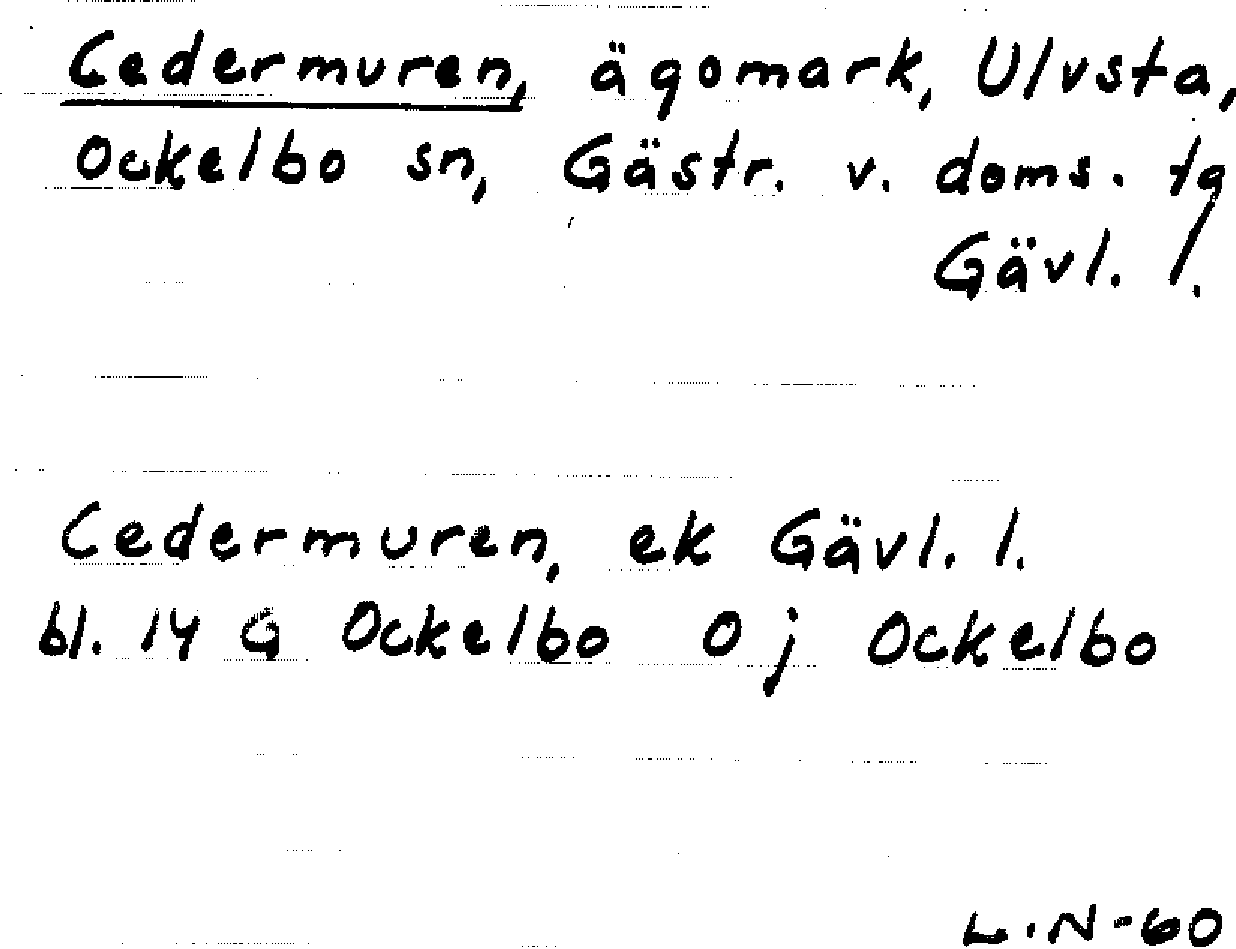 Cedermuren, ägomark, Ulvsta,
Ockelbo sn, Gästr. v. doms. tg
Gävl. l.
Cedermuren, ek Gävl. l.
bl. 14 G Ockelbo 0 j Ockelbo
L.N-60